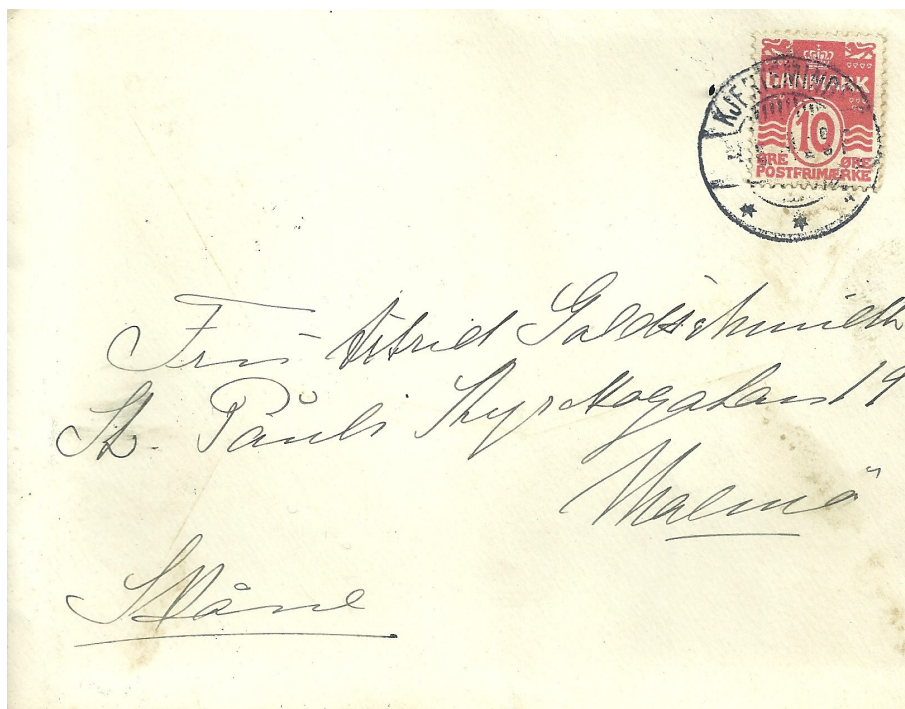 DANMARK
10
ØRE ØRE
POSTFRIMÆRKE
KJE
Fru Astrid Goldschmidt
St. Pauli Kyrkogatan 19
Malmö
Skåne